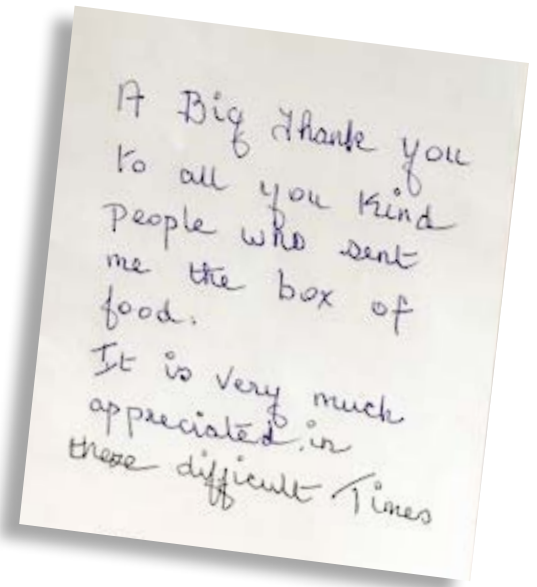 A Big Thank you
to all you kind
people who sent
me the box of
food.
It is very much
appreciated in
these difficult Times